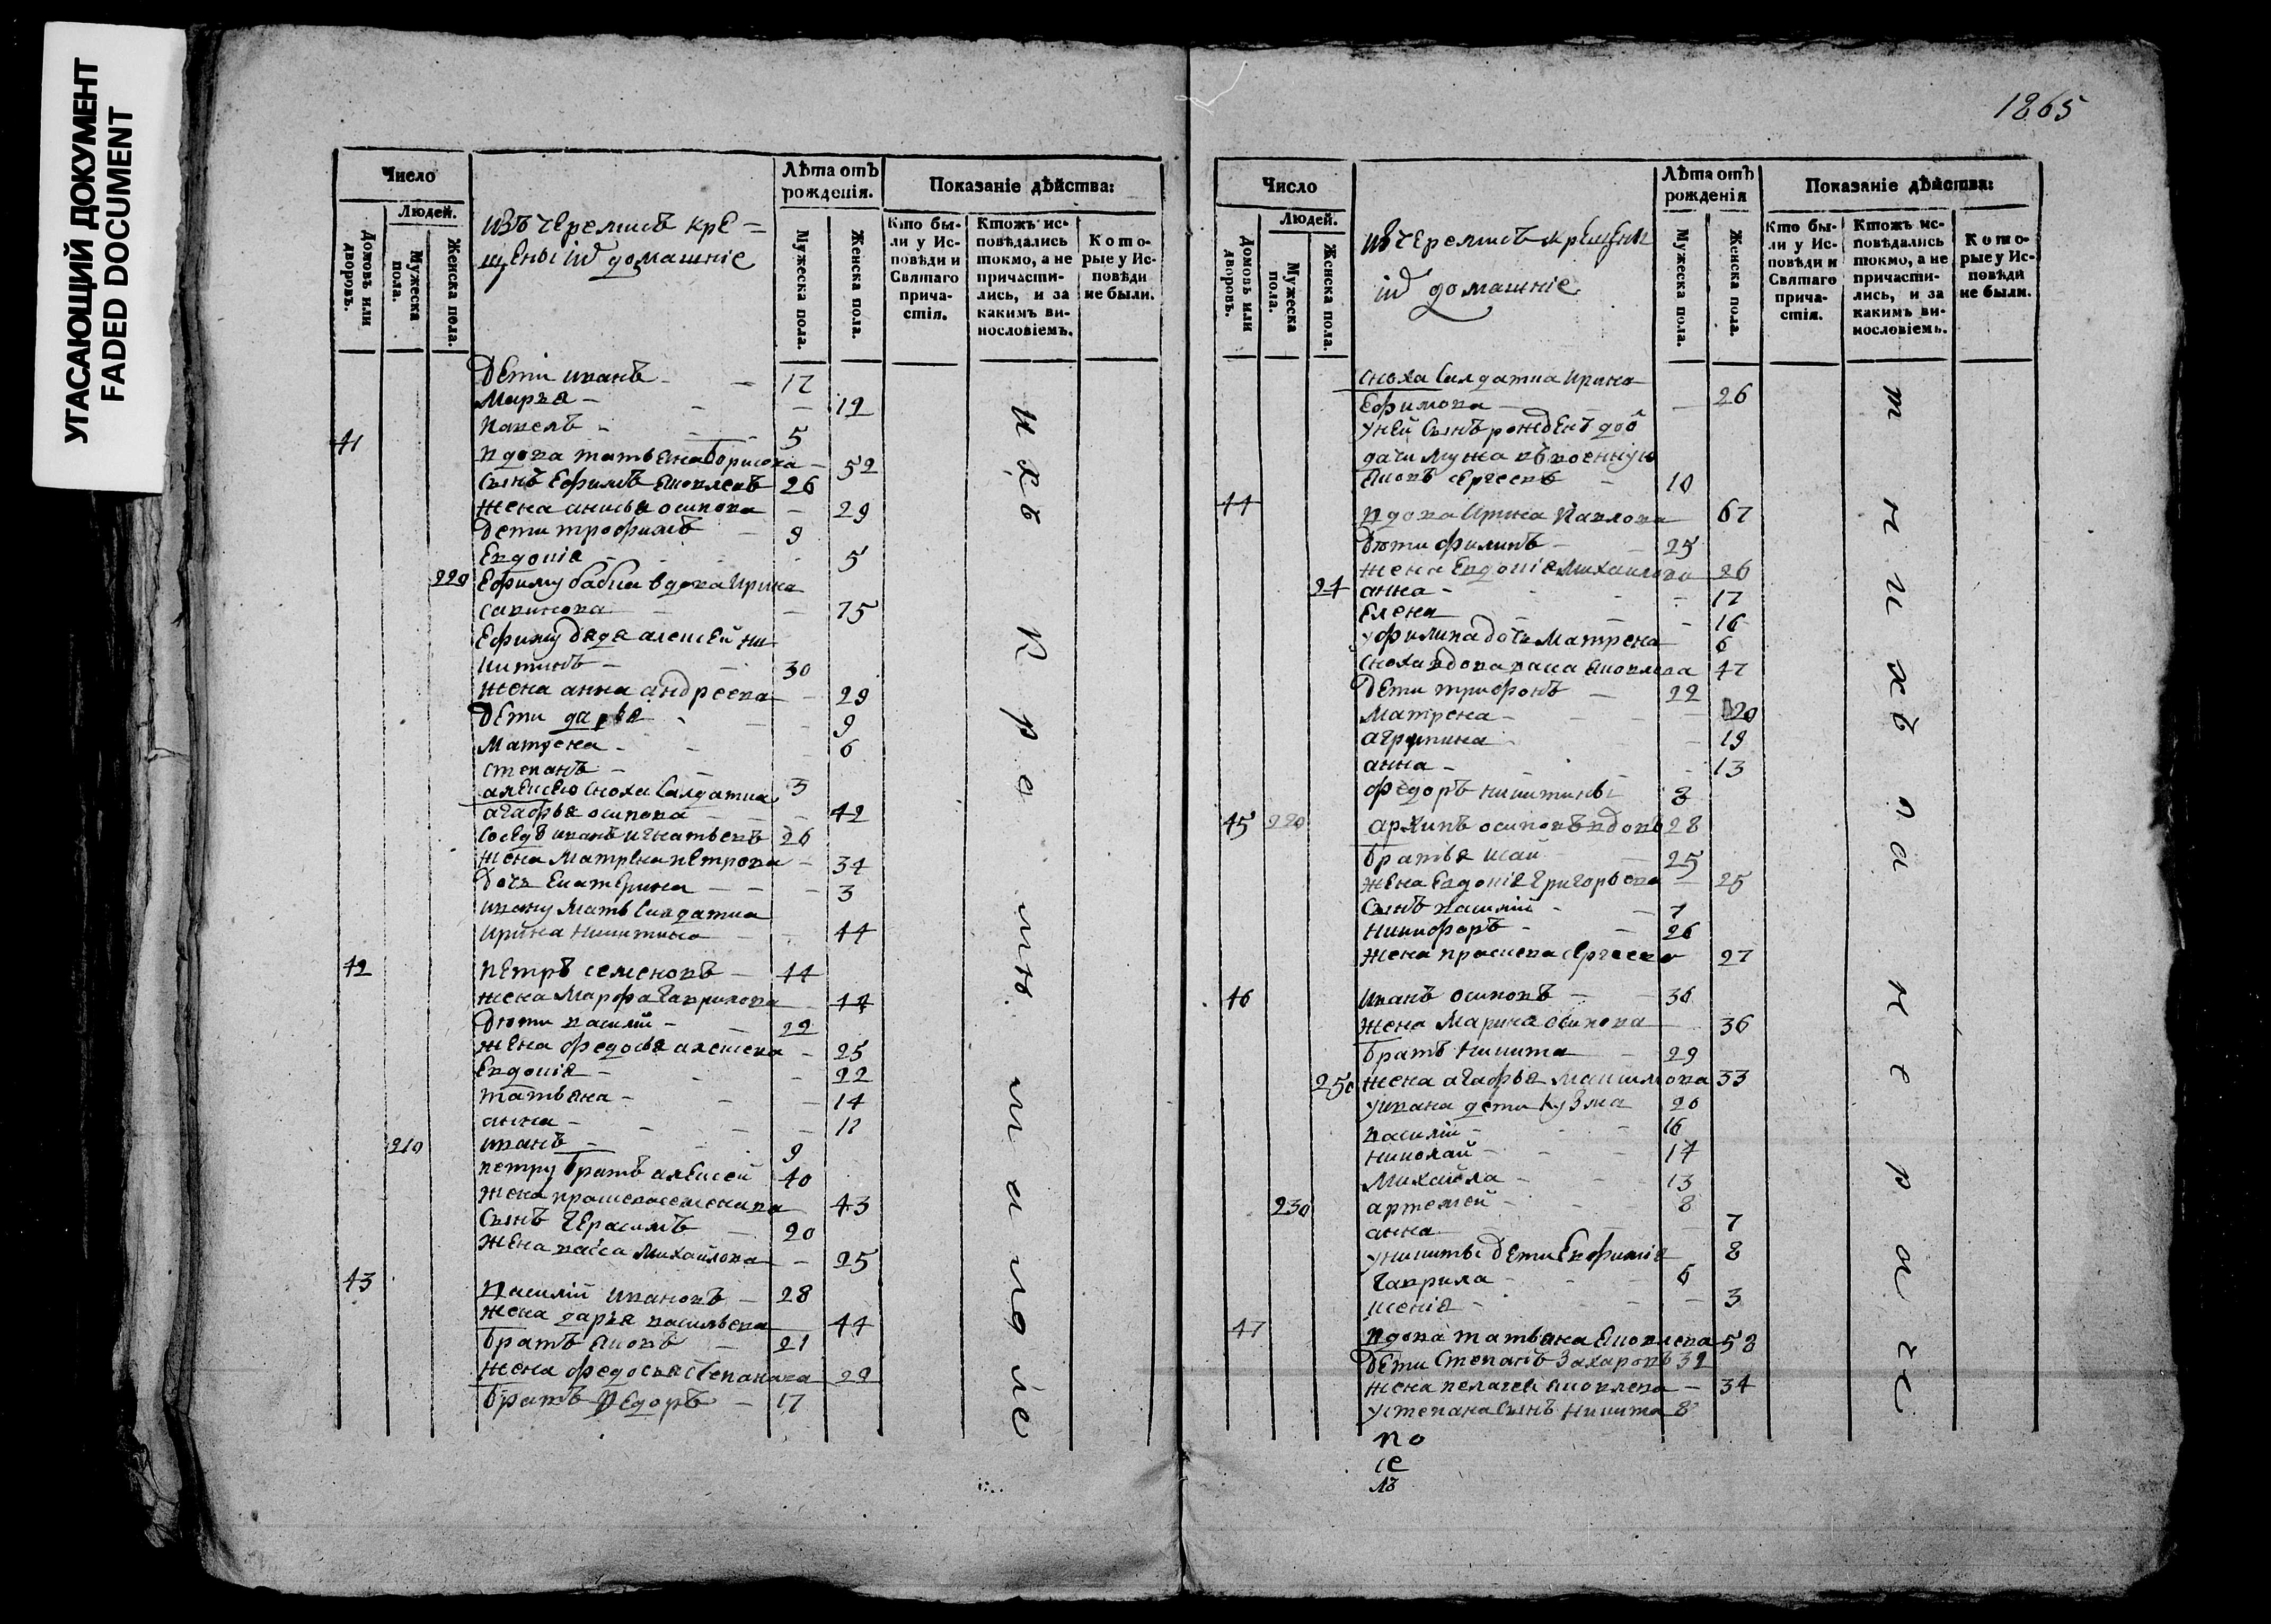 УГАСАЮЩИЙ ДОКУМЕНТ
FADED DOCUMENT
Число
Людей.
Домовъ или дворовъ.
Мужеска пола.
Женска пола.
изъ черемисъ кре=
щены
домашніе
Лѣта отъ рожденія.
Мужеска пола.
Женска пола.
Показаніе дѣйства:
Кто были у Исповѣди и Святаго причастія.
Ктожъ исповѣдались токмо, а не причастились, и за какимъ винословіемъ.
Которые у Исповѣди не были.
Дети иванъ 17
Марья 12
павелъ 5
41 вдова татьяна борисова 52
сынъ Ефимъ яковлевъ 26
жена анисья осипова 29
дети трофимъ 9
Евдокія 5
220 Ефиму бабка вдова Ирина
савинова 75
Ефиму дядя алексей ни
китинъ 30
жена анна андреева 29
дети дарья 9
Матрена 6
степанъ 3
алексею сноха салдатка
агафья осипова 42
соседъ иванъ игнатьевъ 26
жена Матрена петрова 34
дочь Екатерина 3
ивану мать салдатка
ирина никитина 44
42 петръ семеновъ 44
жена Марфа гаврилова 44
дети василій 22
жена федосья алексеева 25
Евдокія 22
татьяна 14
анна 11
210 иванъ 9
петру братъ алексей 40
жена прасковья семенова 43
сынъ герасимъ 20
жена васса Михайлова 25
43 василій ивановъ 28
жена дарья васильева 44
братъ яковъ 21
жена федосья степанова 22
братъ федоръ 17
ихъ
время
1865
Число
Людей.
Домовъ или дворовъ.
Мужеска пола.
Женска пола.
изъ черемисъ крещены
домашніе
Лѣта отъ рожденія
Мужеска пола.
Женска пола.
Показаніе дѣйства:
Кто были у Исповѣди и Святаго причастія.
Ктожъ исповѣдались токмо, а не причастились, и за какимъ винословіемъ.
Которые у Исповѣди не были.
сноха салдатка ирина
Ефимова 26
у ней сынъ рожденъ до о
дачи мужа въ военную
яковъ сергеевъ 10
44 вдова Ирина Павлова 67
дети филипъ 25
жена Евдокія Михаилова 26
24 анна 17
Елена 16
у филипа дочь Матрена 6
сноха вдова васса яковлева 47
дети трифонъ 22
Матрена 20
агрипина 19
анна 13
федоръ никитины 3
45 220 архипъ осиповъ вдовъ 28
братья исай 25
жена Евдокія григорьева 25
сынъ василій 7
никифоръ 26
жена прасковья сергеева 27
46 иванъ осиповъ 36
жена Марина осипова 36
братъ никита 29
250 жена агафья 33
у ивана дети кузма 20
василій 16
николай 14
Михайла 13
230 артемей 8
анна 7
у никиты дети Евфимія 8
гаврила 6
ксенія 3
47 вдова татьяна яковлева 58
дети степанъ Захаровъ 32
жена пелагея яковлева 34
у степана сынъ никита 8
по
се
лъ